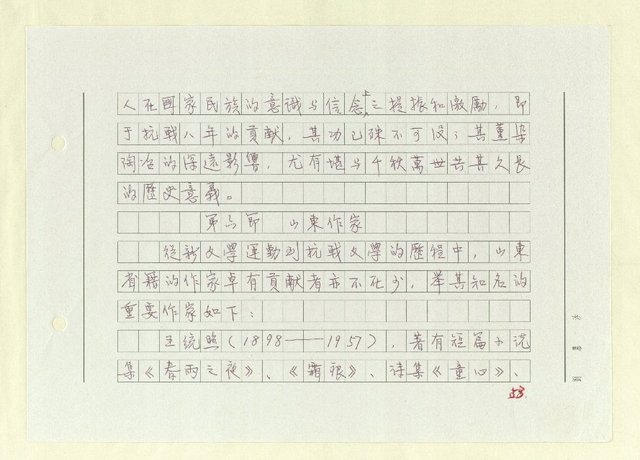 人在國家民族的意識与信念上之提振和激勵，即
于抗戰八年的貢献，其功已殊不可没；其薰染
陶冶的深遠影響，尤有堪与千秋萬世共其久長
的歷史意義。
第三節　山東作家
從新文學運動到抗戰文學的歷程中，山東
省籍的作家卓有貢献者亦不在少，举其知名的
重要作家如下：
王统照（1898——1957），著有短篇小説
集《春雨之夜》、《霜痕》、诗集《童心》、
53